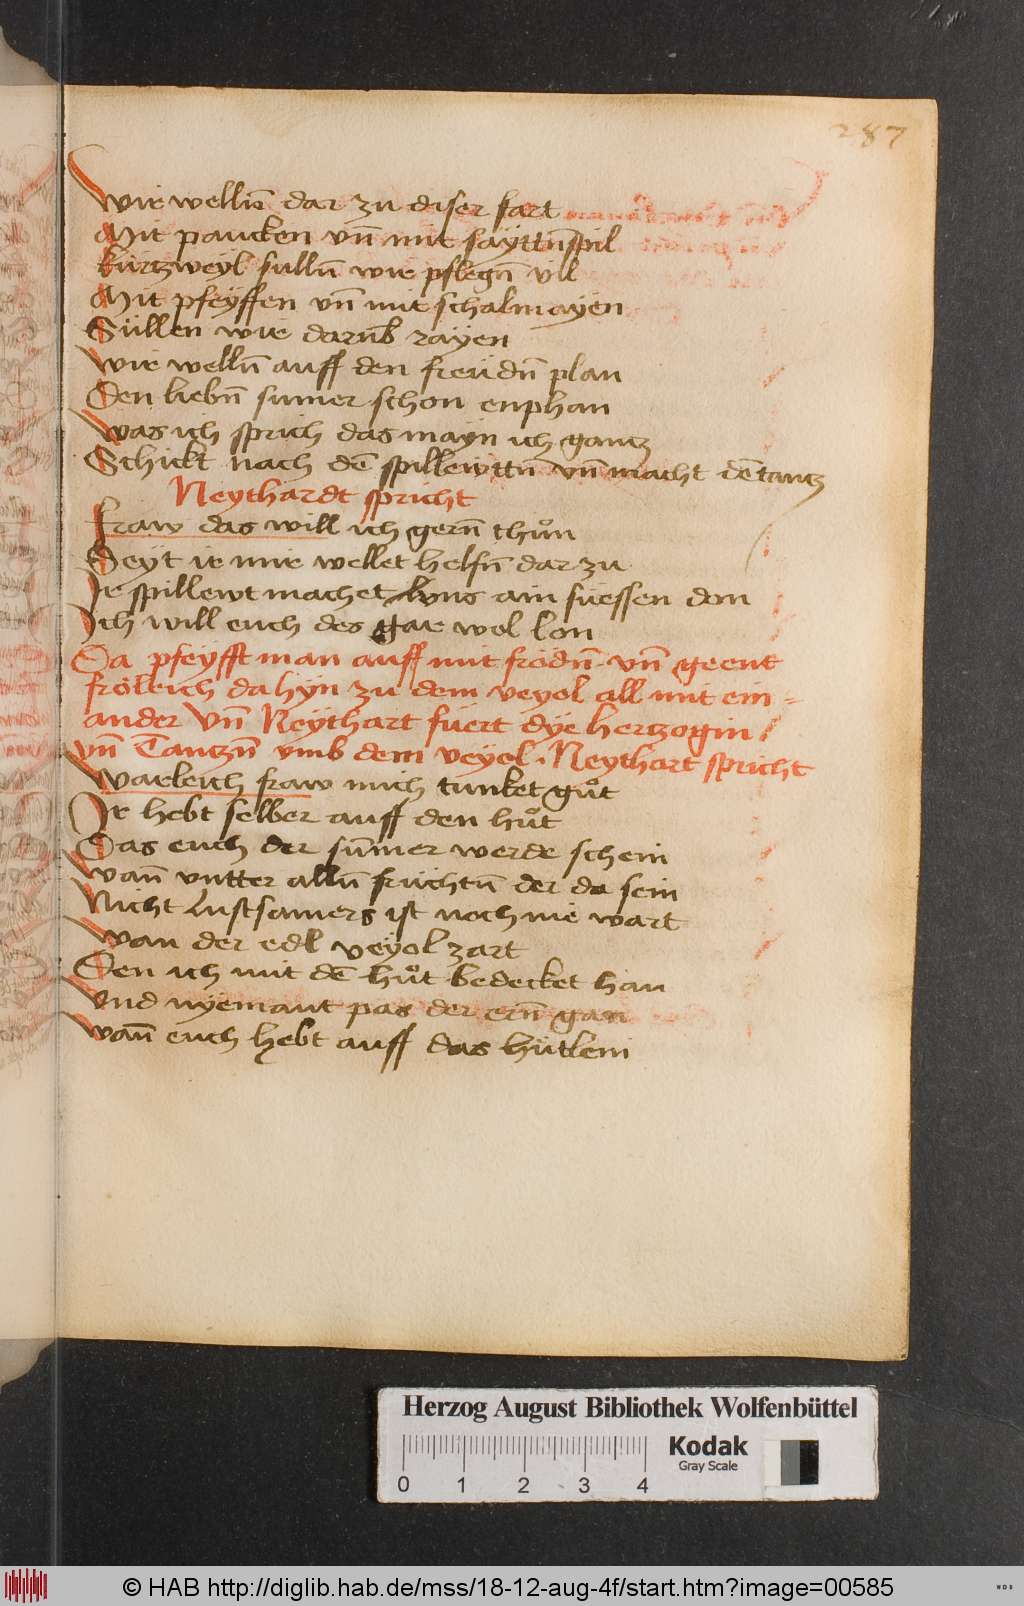 287
Wir wellñ dar zu diser fart
Mit paucken vñ mit säyttñspil
Kurtzweyl sullñ wir pflegñ vil
Mit pfeyffen vñ mit schalmayen
Süllen wir darũb räyen
Wir wellñ auff den freüdñ plan
Den liebñ sumer schon enphan
Was ich sprich das mayn ich gantz
Schickt nach dē spillewttñ vñ macht dē tantz
Neythardt spricht
Fraw das will ich gerñ thůn
Seyt ir mir wellet helfñ dar zu
Ir spillewt machet vns ain süessen don
Ich will euch des gar wol lon
Da pfeyfft man auff mit frödñ vñ geent
frölich da hÿn zu dem veyol all mit ein=
ander Vñ Neÿthart füert dÿe hertzogin
vñ Tantzñ vmb dem veyol. Neythart spricht
Warleich fraw mich tunket gůt
Ir hebt selber auff den hůt
Das euch der sum̄er werde schein
Wañ vntter allñ früchtñ der da sein
Nicht lustsamers ist noch nie wart
Wan der edl veÿol zart
Den ich mit dē hůt bedecket han
Vnd nyemant pas der erñ gan
Wañ euch hebt auff das hütlein
Herzog August Bibliothek Wolfenbüttel
Kodak
Gray Scale
0 1 2 3 4
© HAB http://diglib.hab.de/mss/18-12-aug-4f/start.htm?image=00585